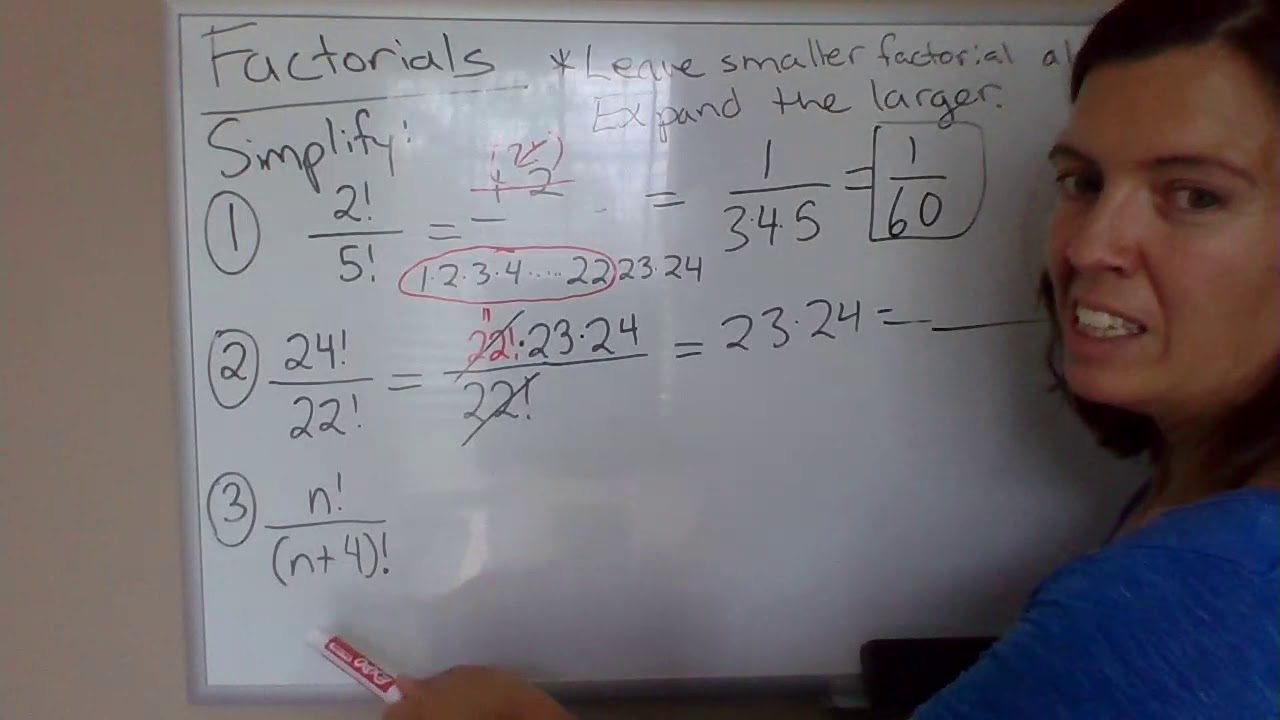 Factorials *Leave smaller factorial
Expand the larger.
Simplify:
① 2!/5! = = 1/3·4·5 = 1/60
1·2·3·4·····22 23·24
② 24!/22! = 22!·23·24/22! = 23·24 =
③ n!/(n+4)!